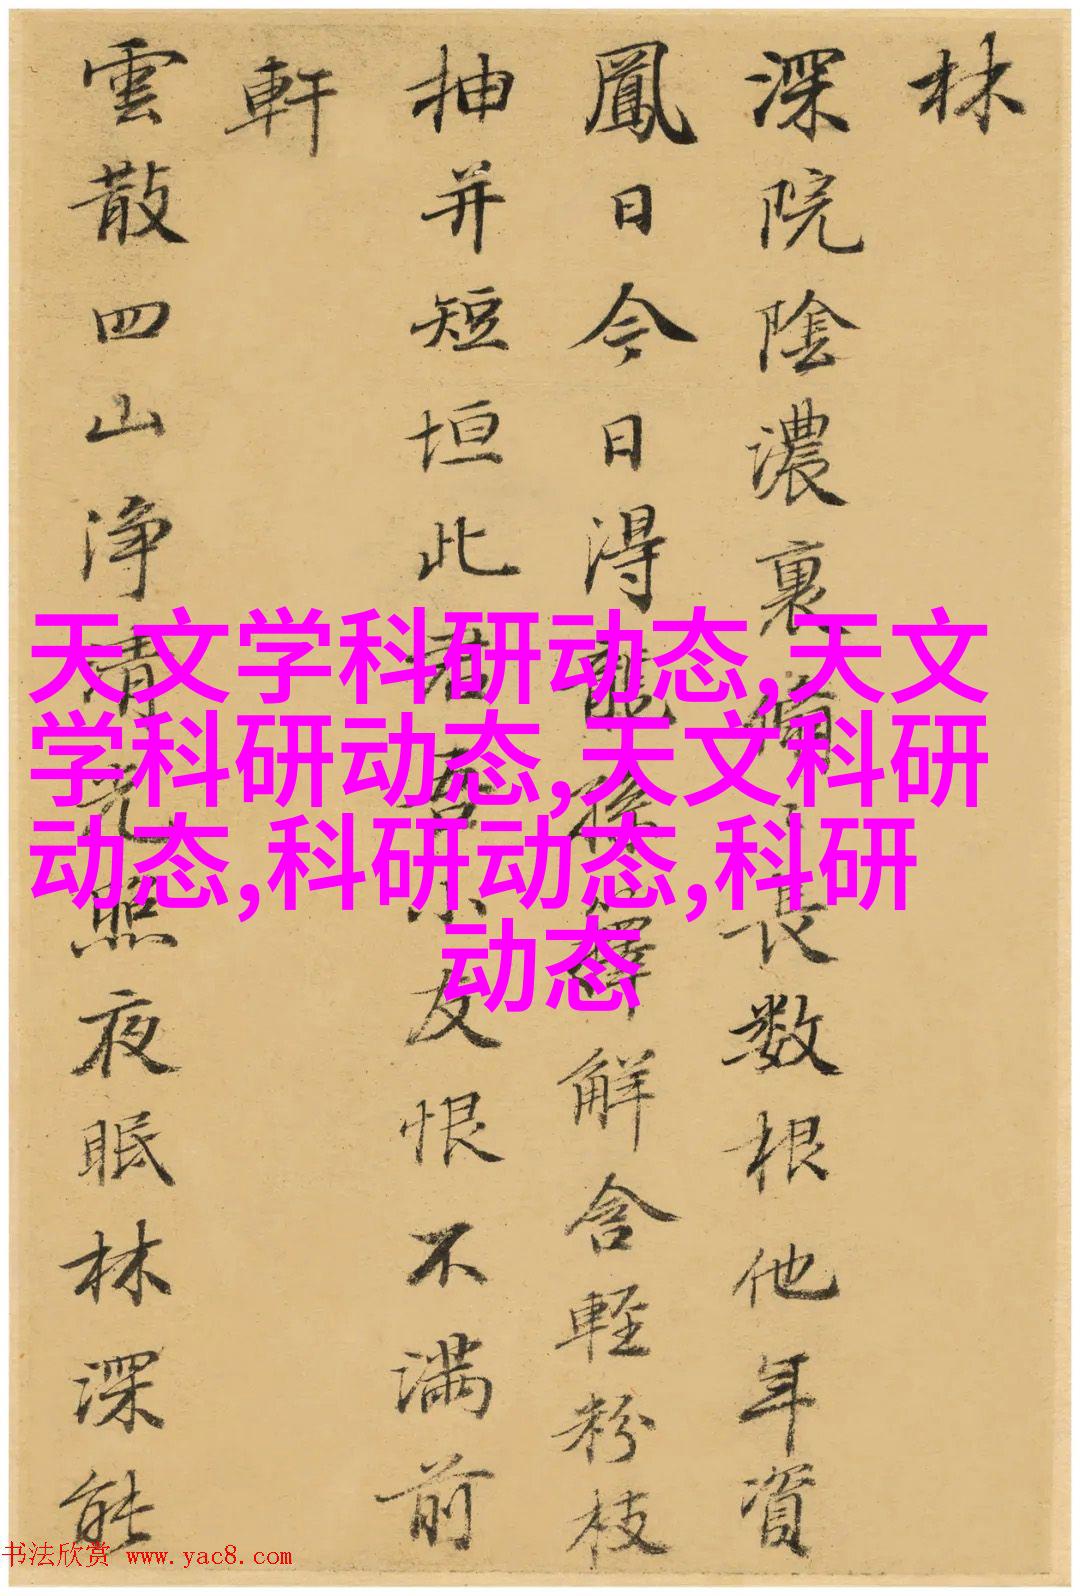 林
深院陰濃裏脩篁長数根他年資
鳳日今日得龍孫籜解含輕粉枝
抽并短垣此君吾小友恨不满前
軒
雲散四山净清光照夜眠林深能
天文学科研动态,天文
学科研动态,天文科研
动态,科研动态,科研
动态
书法欣赏 www.yac8.com